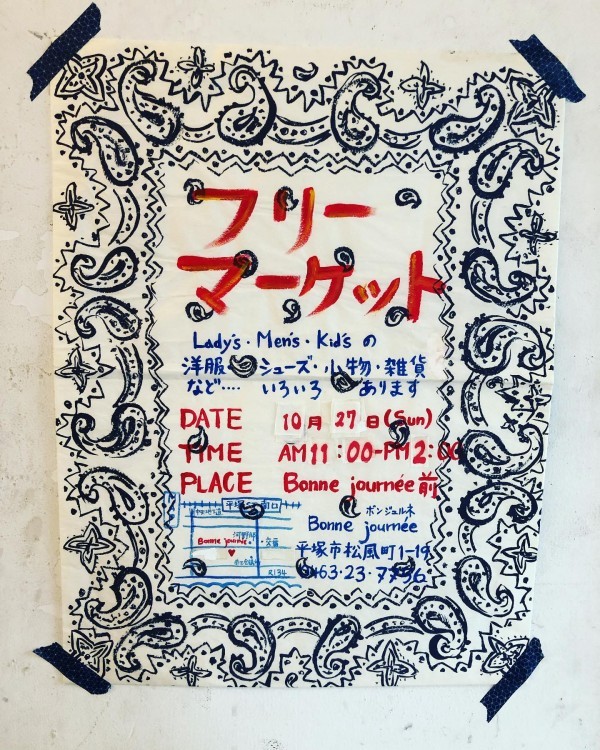 フリー
マーケット
Lady's・Men's・Kid's の
洋服・シューズ・小物・雑貨
など‥‥ いろいろ あります
DATE 10月 27日(Sun)
TIME AM11:00-PM2:00
PLACE Bonne journée 前
ボンジュルネ
Bonne journée
平塚市松風町1-19
0463・23・7756
平塚 南口
Bonne journée
交番
R134